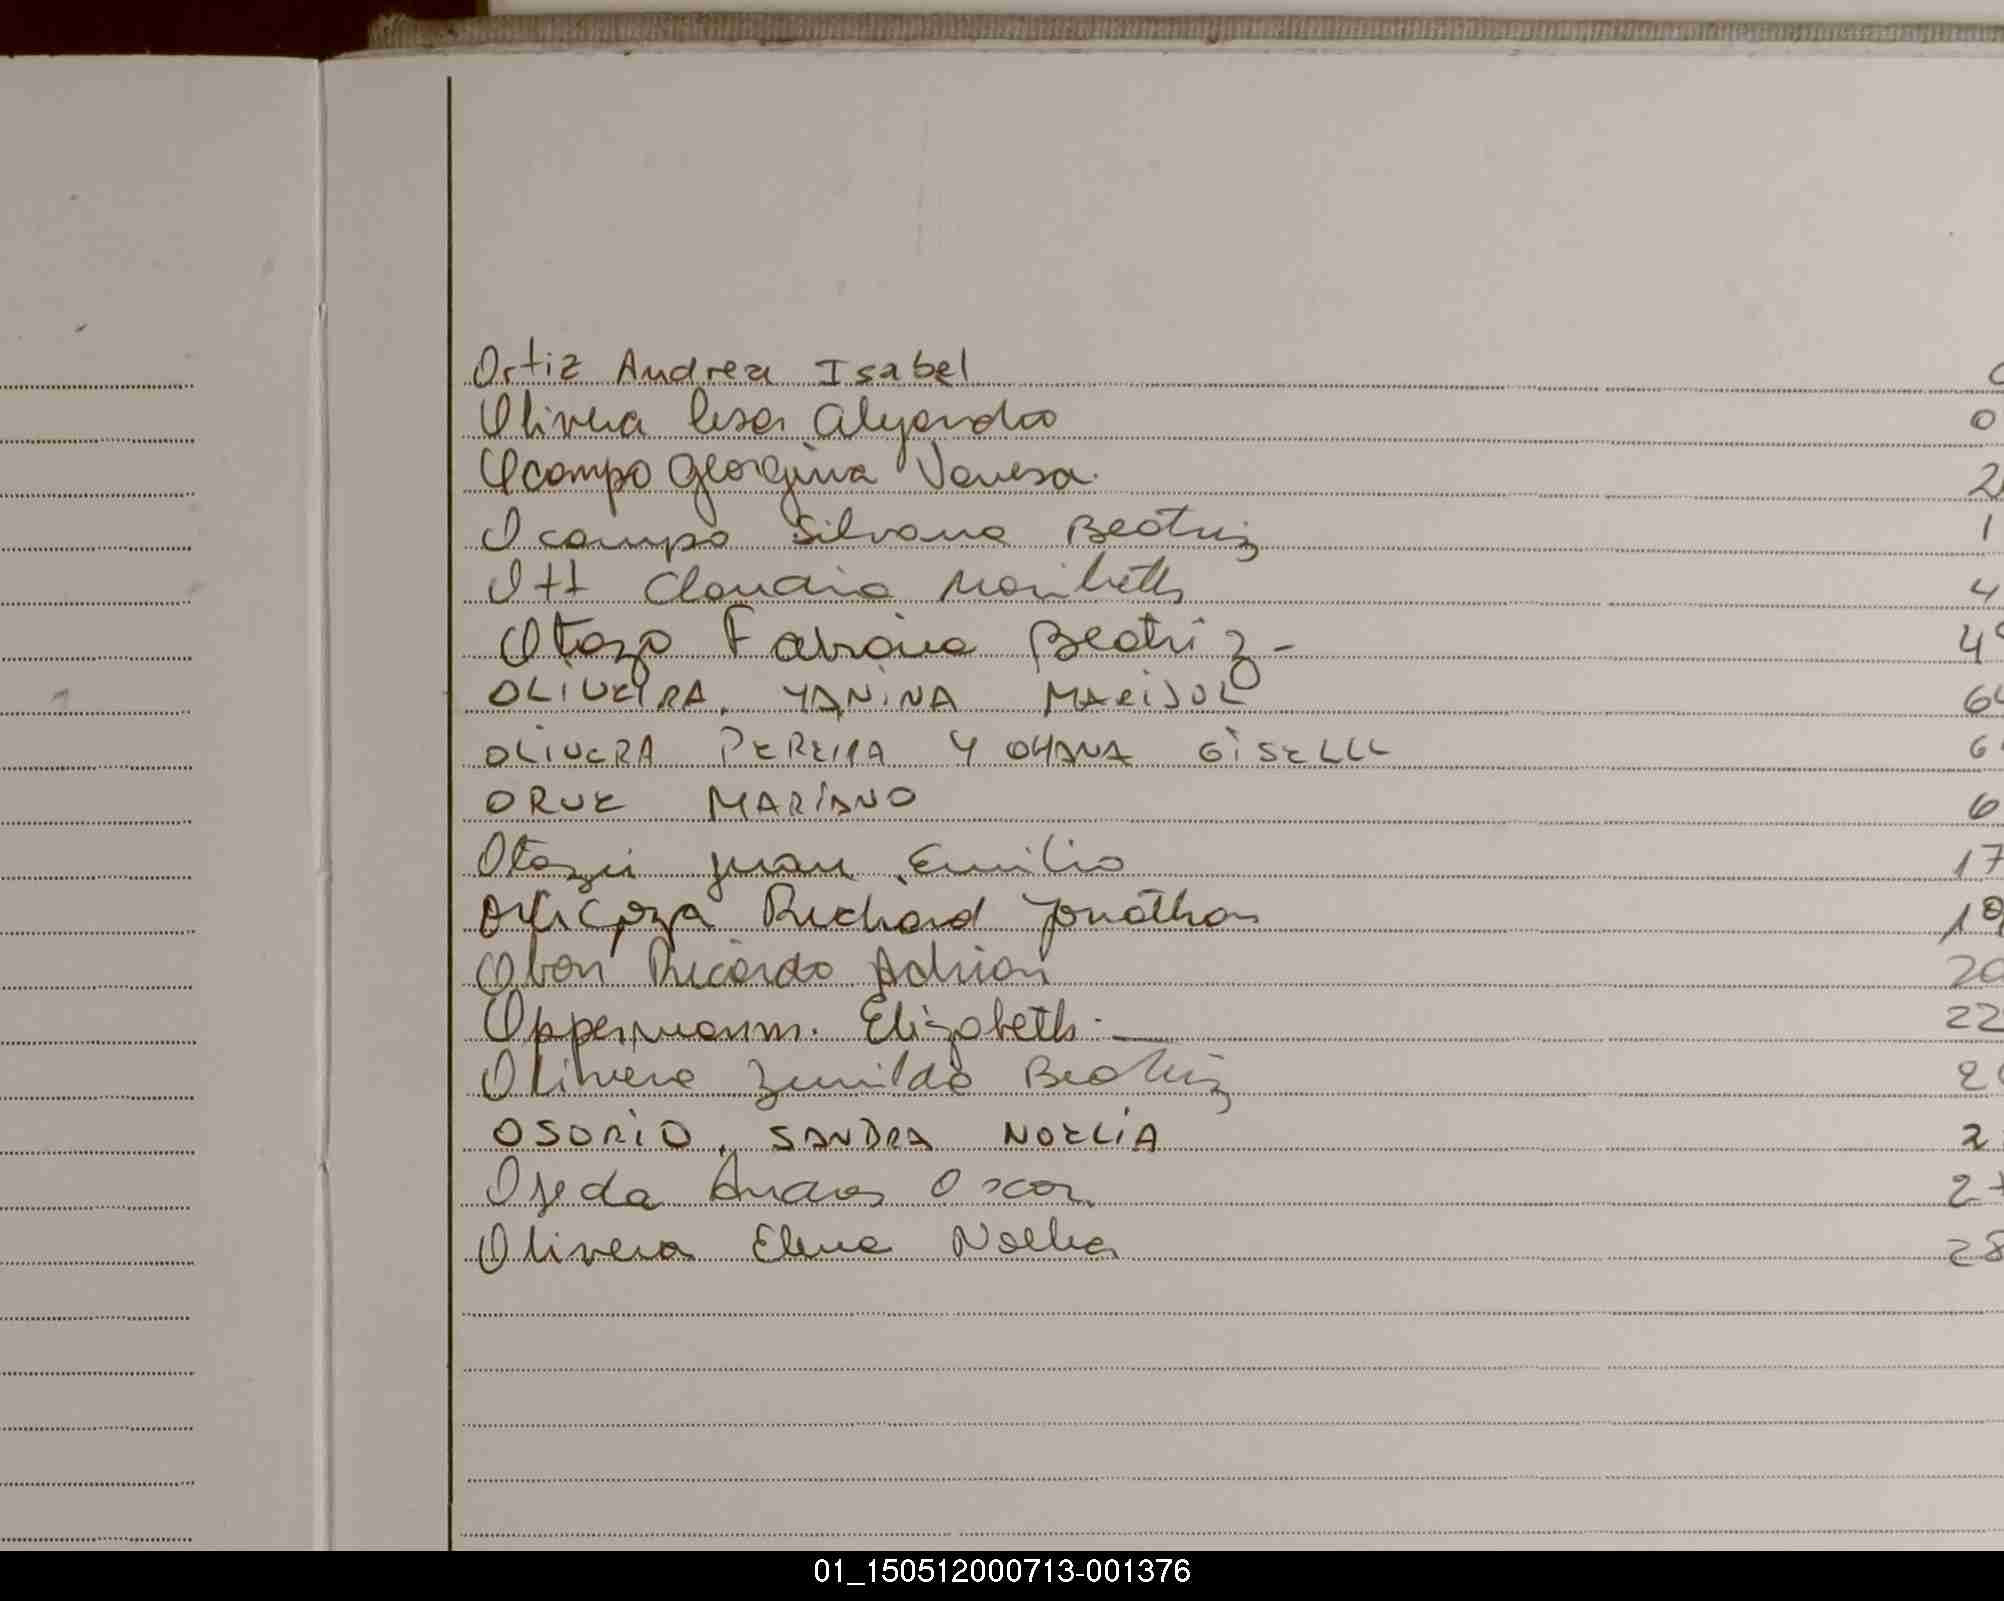 Ortiz Andrea Isabel
Olivera Cesar Alejandro 0
Ocampo Georgina Vanesa. 2
Ocampo Silvana Beatriz 1
Ott Claudia Maribeth 4
Otazo Fabiana Beatriz - 4
OLIVEIRA, YANINA MARISOL 6
OLIVERA PEREIRA YOHANA GISELLE 6
ORUE MARIANO 6
Otazu Juan Emilio 17
Richard Jonathan 19
Obon Ricardo Adrian 20
Oppermann. Elizabeth. 22
Olivera Zunilda Beatriz 2
OSORIO, SANDRA NOELIA 2
Ojeda Andres Oscar. 2
Olivera Elena Noelia 28
01_150512000713-001376